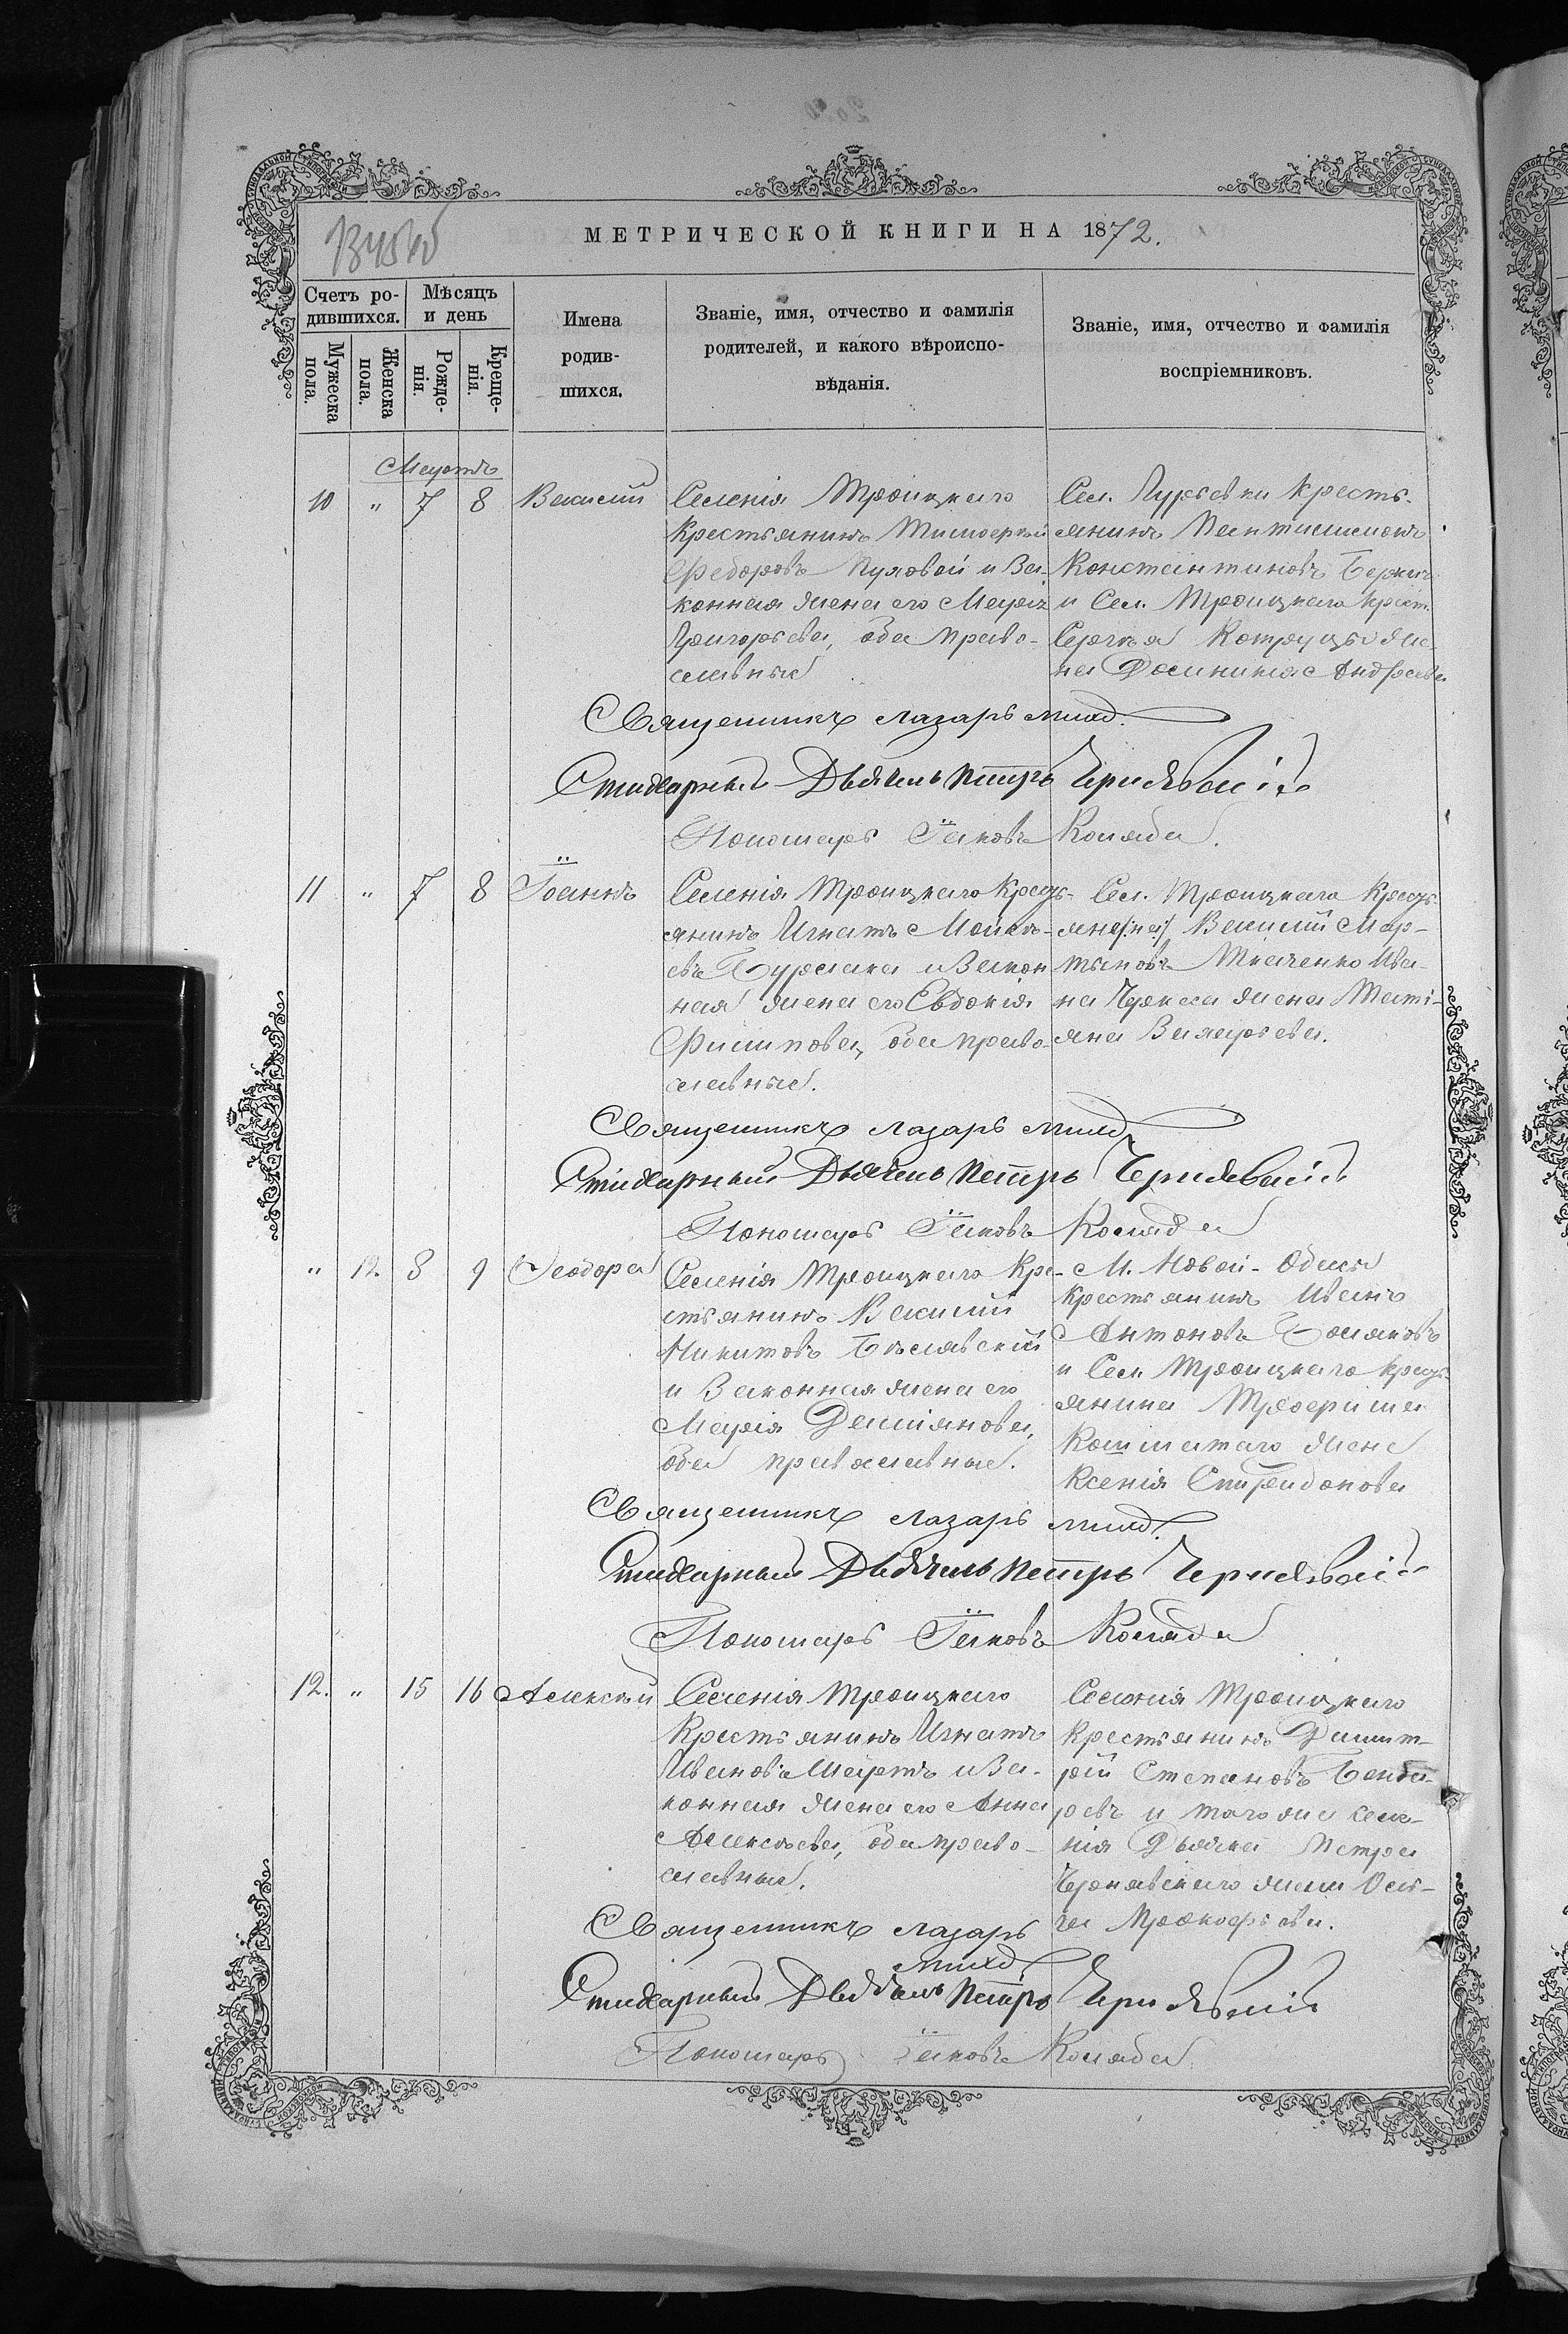 МЕТРИЧЕСКОЙ КНИГИ НА 1872.
Счетъ ро-
дившихся.
Мѣсяцъ
и день
Мужеска
пола.
Женска
пола.
Рожде-
нія.
Креще-
нія.
Имена
родив-
шихся.
Званіе, имя, отчество и фамилія
родителей, и какого вѣроиспо-
вѣданія.
Званіе, имя, отчество и фамилія
воспріемниковъ.
Мартъ
10 " 7 8 Василій
Селенія Троицкаго
крестьянинъ Тимофей
Федоровъ Пуговой и За-
конная жена его Марія
Григорьева, оба право-
славные
Сел. Гурьевки кресть-
янинъ Пантилимонъ
Константиновъ
и Сел. Троицкаго крест.
Сергѣя жe-
на Доминикія Андреева
Священникъ Лазарь
Стихарный Дьячекъ Петръ Чернявскій
Пономарь Іаковъ Коляда.
11 " 7 8 Іоаннъ
Селенія Троицкаго Крест-
янинъ Игнатъ Моисѣ-
евъ Бурлака и Закон
ная жена его Евдокія
Филипова, оба право-
славные.
Сел. Троицкаго Крест-
яне/:на:/ Василій Мар-
тыновъ Ткаченко Ива-
на Черкеса жена Таті-
яна Захарьева.
Священникъ Лазарь
Стихарный Дьячекъ Петръ Чернявскій
Пономарь Іаковъ Коляда
" 12. 8 9 Ѳеодора
Селенія Троицкаго Кре-
стьянинъ Василій
Никитовъ Бѣлявскій
и Законная жена его
Марія Даміянова,
оба православные.
М. Новой-Одессы
крестьянинъ Иванъ
Антоновъ Поляковъ
и Сел. Троицкаго крест-
янина Трофима
жена
Ксенія Спиридонова
Священникъ Лазарь
Стихарный Дьячекъ Петръ Чернявскій
Пономарь Іаковъ Коляда
12. " 15 16 Алексѣй
Селенія Троицкаго
Крестьянинъ Игнатъ
Ивановъ Мартъ и За-
конная жена его Анна
Алексѣева, оба право-
славные.
Селенія Троицкаго
крестьянинъ Димит-
рій Степановъ Бонда-
ревъ и того же селе-
нія Дьячка Петра
Чернявскаго жена Оль-
га Прокофьева.
Священникъ Лазарь
Стихарный Дьячекъ Петръ Чернявскій
Пономарь Іаковъ Коляда